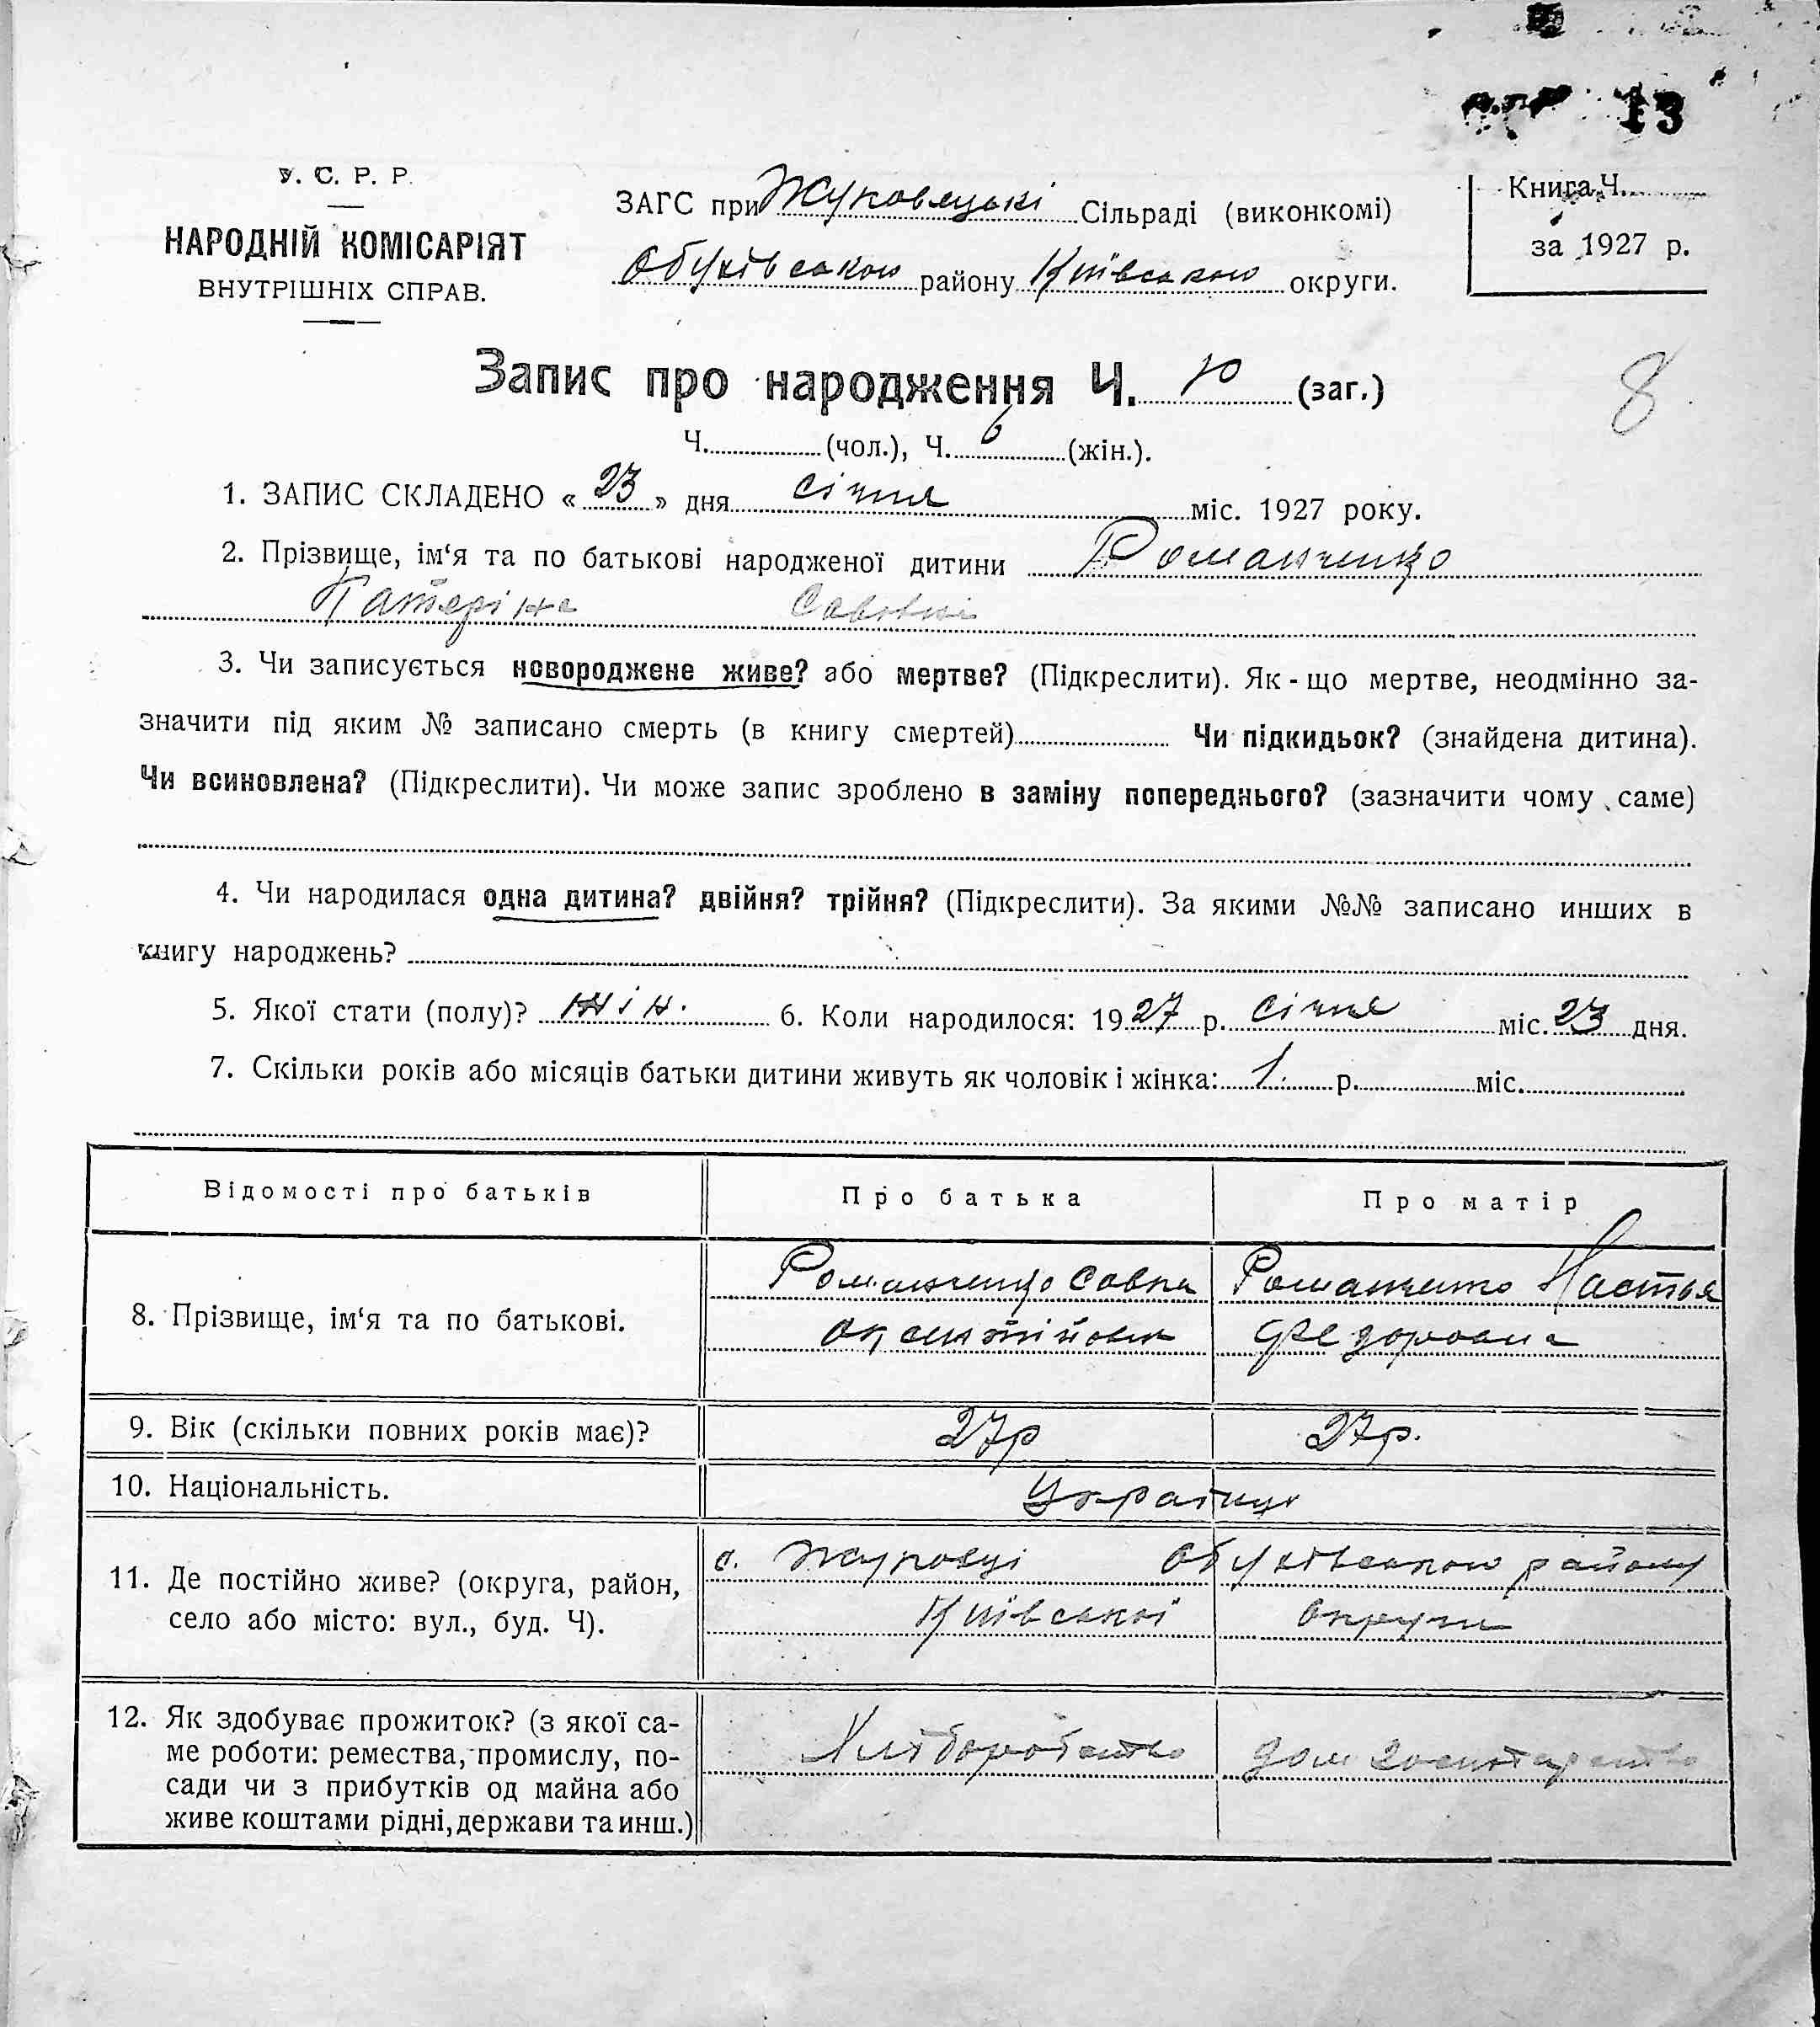 13
У. С. Р. Р.
НАРОДНІЙ КОМІСАРІЯТ
ВНУТРІШНІХ СПРАВ.
ЗАГС при Жуковецькі Сільраді (виконкомі)
Обухівського району Київського округи.
Книга Ч.
за 1927 р.
8
Запис про народження Ч. 10 (заг.)
Ч. (чол.), Ч. 6 (жін.).
1. ЗАПИС СКЛАДЕНО « 23 » дня січня міс. 1927 року.
2. Прізвище, ім‘я та по батькові народженої дитини Романченко
Катеріна
3. Чи записується новороджене живе? або мертве? (Підкреслити). Як - що мертве, неодмінно за-
значити під яким № записано смерть (в книгу смертей) Чи підкидьок? (знайдена дитина).
Чи всиновлена? (Підкреслити). Чи може запис зроблено в заміну попереднього? (зазначити чому саме)
4. Чи народилася одна дитина? двійня? трійня? (Підкреслити). За якими №№ записано инших в
книгу народжень?
5. Якої стати (полу)? жін. 6. Коли народилося: 1927 р. січня міс. 23 дня.
7. Скільки років або місяців батьки дитини живуть як чоловік і жінка: 1 р. міс.
Відомості про батьків Про батька Про матір
8. Прізвище, ім‘я та по батькові.
Романченко Савка Романченко Настья
Оксентійович Федоровна
9. Вік (скільки повних років має)? 27р 27р.
10. Національність. Українці
11. Де постійно живе? (округа, район,
село або місто: вул., буд. Ч).
с. Жуковці Обухівського району
Київської округи
12. Як здобуває прожиток? (з якої са-
ме роботи: ремества, промислу, по-
сади чи з прибутків од майна або
живе коштами рідні, держави та инш.)
Хліборобство дом господарство